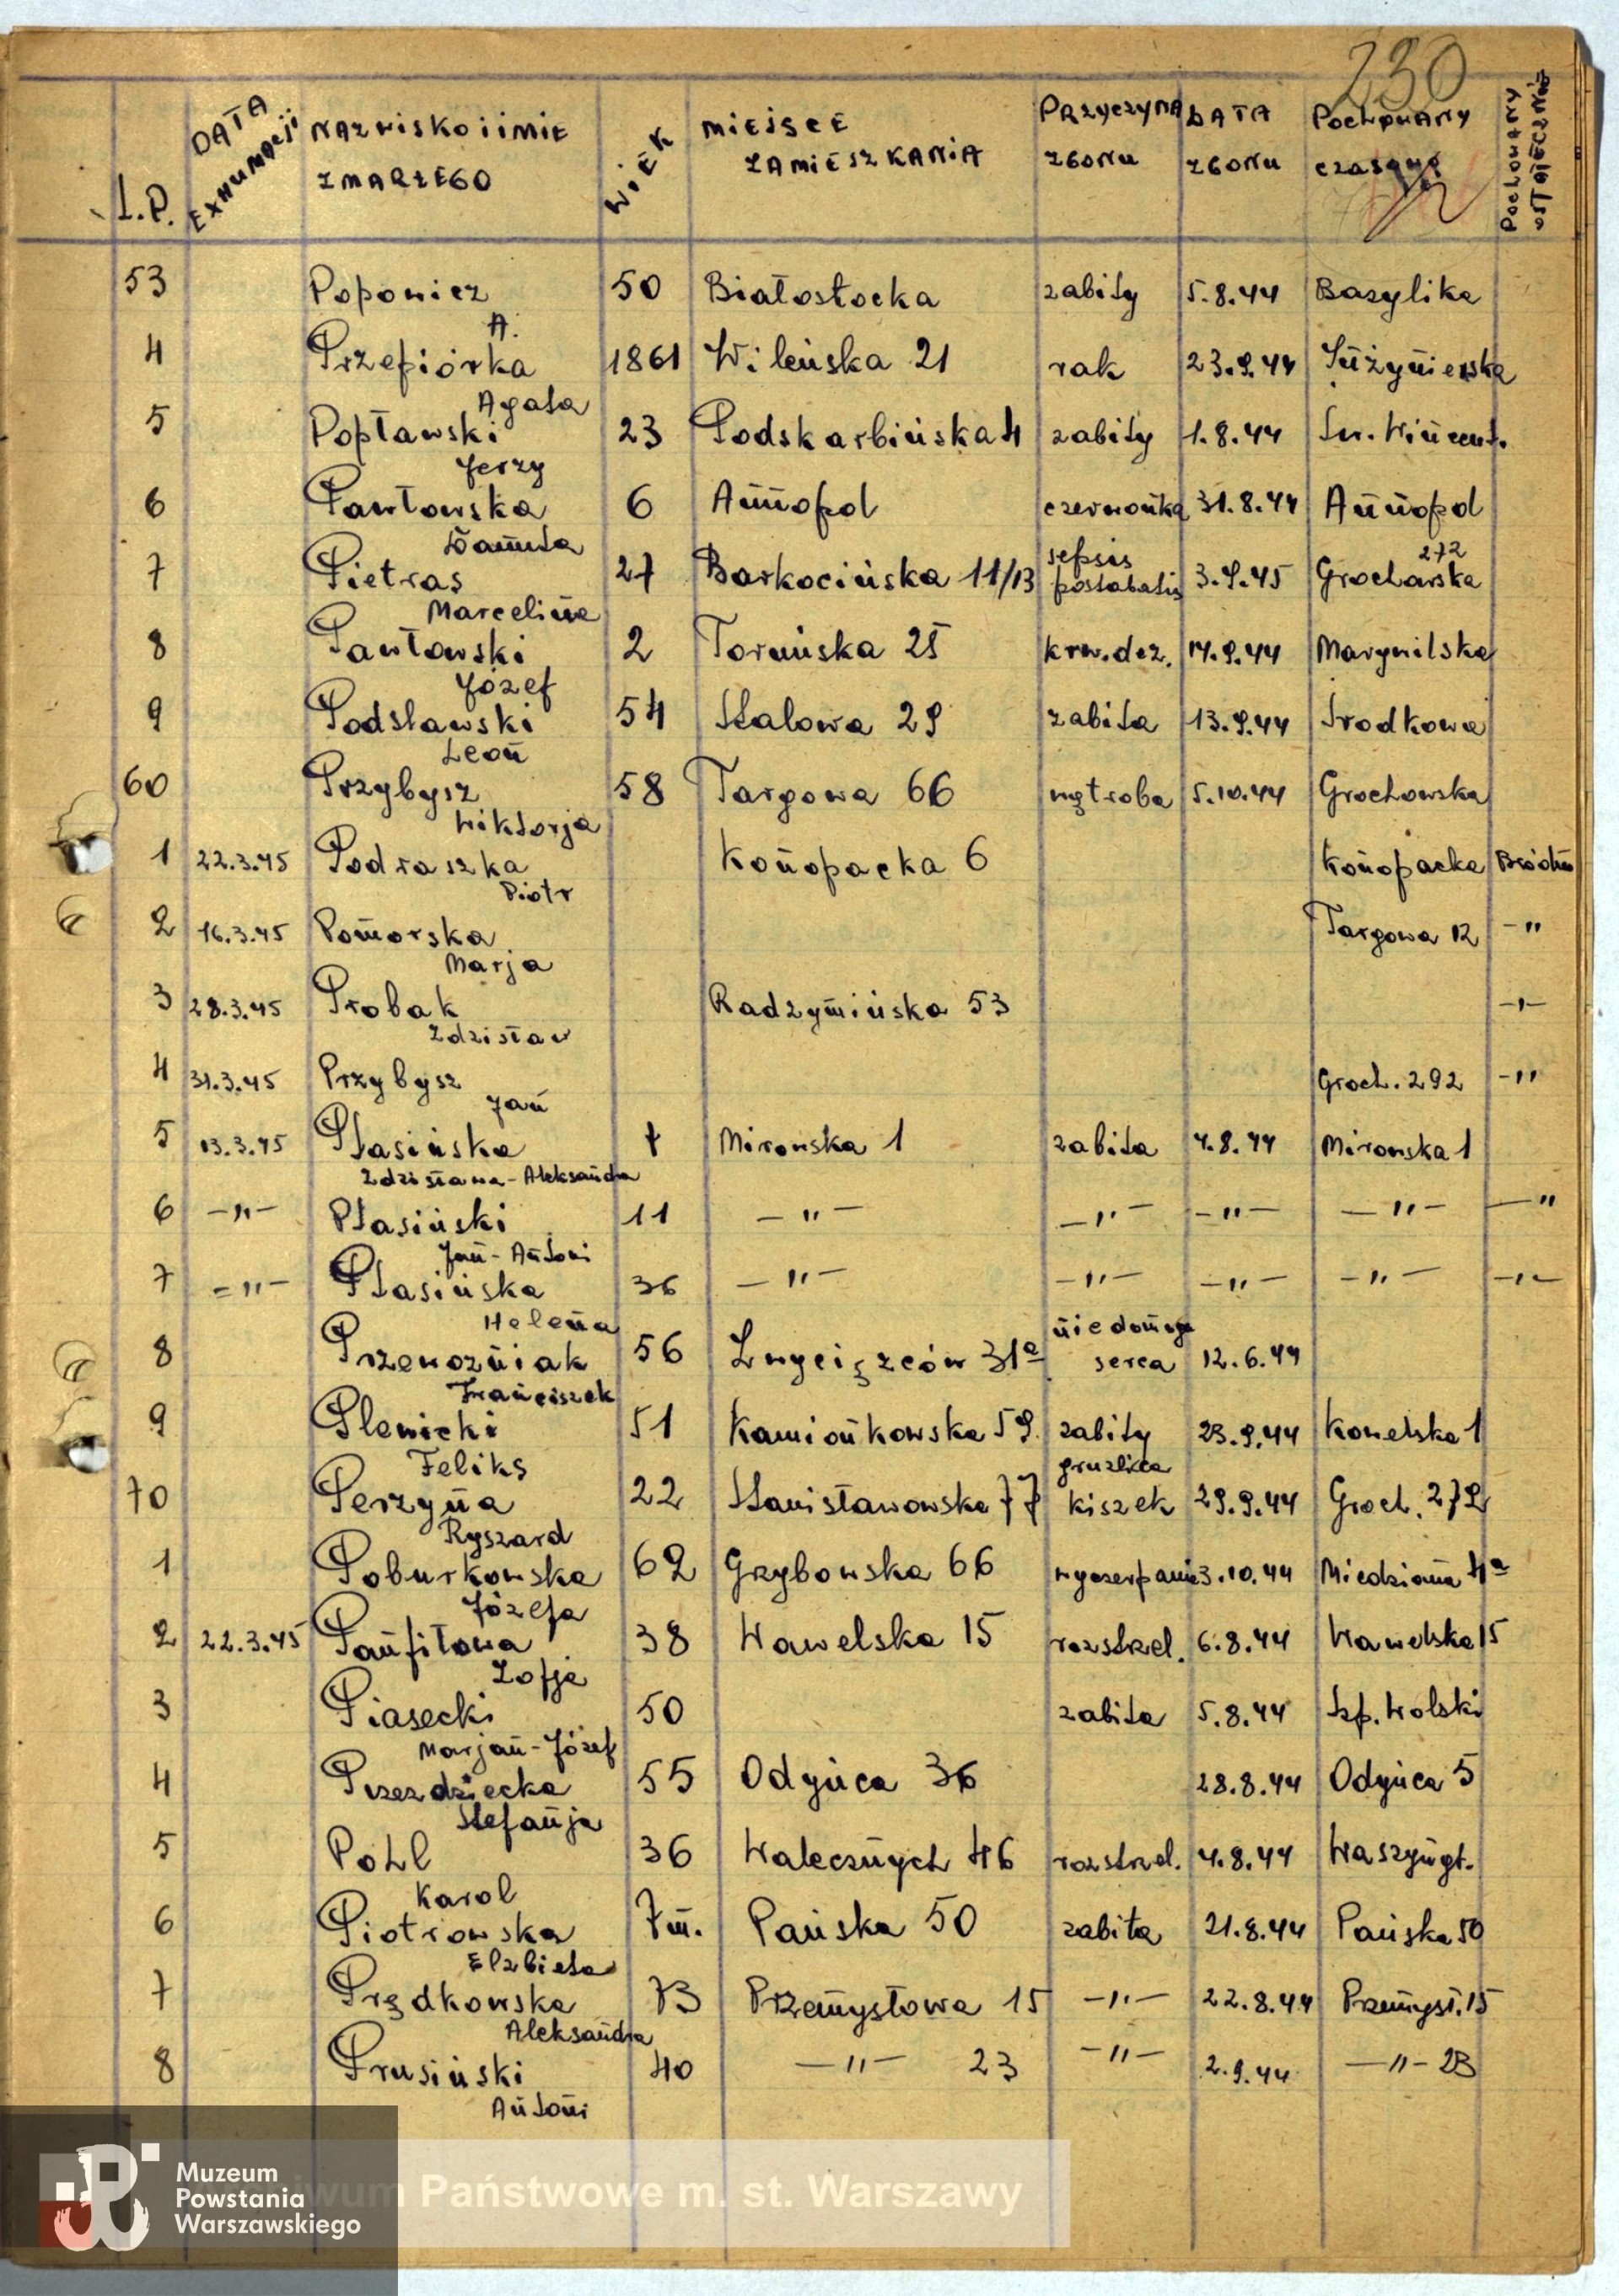 230
L.P. DATA EXHUMACJI NAZWISKO i IMIĘ ZMARŁEGO WIEK MIEJSCE ZAMIESZKANIA PRZYCZYNA ZGONU DATA ZGONU POCHOWANY czasowo POCHOWANY OSTATECZNIE
53 Popowicz A. 50 Białostocka zabity 5.8.44 Bazylika
4 Przepiórka Agata 1861 Wileńska 21 rak 23.9.44 Inżynierska
5 Popławski Jerzy 23 Podskarbińska 4 zabity 1.8.44 Św. Wincent.
6 Pawłowska Danuta 6 Annopol czerwonka 31.8.44 Annopol
7 Pietras Marcelina 27 Barkocińska 11/13 sepsis 3.9.45 Grochowska 272
8 Pawłowski Józef 2 Toruńska 25 krw. dez. 14.9.44 Marywilska
9 Podsławski Leon 54 Stalowa 29 zabita 13.9.44 Środkowa
60 Przybysz Wiktorja 58 Targowa 66 wątroba 5.10.44 Grochowska
1 22.3.45 Podraszka Piotr Konopacka 6 Konopacka Bródno
2 16.3.45 Pomorska Marja Targowa 12 -"
3 28.3.45 Probak Zdzisław Radzymińska 53 -"-
4 31.3.45 Przybysz Jan Groch. 292 -"
5 13.3.45 Ptasińska Zdzisława-Aleksandra 7 Mirowska 1 zabita 4.8.44 Mirowska 1
6 -"- Ptasiński Jan-Antoni 11 -"- -"- -"- -"- -"
7 -"- Ptasińska Helena 36 -"- -"- -"- -"- -"-
8 Przewoźniak Franciszek 56 Zwycięzców 31a niedomoga serca 12.6.44
9 Plewicki Feliks 51 Kamionkowska 59 zabity 23.9.44 Kowelska 1
70 Perzyna Ryszard 22 Stanisławowska 77 gruźlica kiszek 29.9.44 Groch. 272
1 Poburkowska Józefa 62 Grzybowska 66 wyczerpanie 3.10.44 Miedziana 4a
2 22.3.45 Panfiłowa Zofja 38 Wawelska 15 rozstrzel. 6.8.44 Wawelska 15
3 Piasecki Marjan-Józef 50 zabita 5.8.44 Szp. Wolski
4 Przezdziecka Stefanja 55 Odyńca 36 28.8.44 Odyńca 5
5 Pohl Karol 36 Walecznych 46 rozstrzel. 4.8.44 Waszyngt.
6 Piotrowska Elżbieta 7 m. Pańska 50 zabita 21.8.44 Pańska 50
7 Prędkowska Aleksandra 73 Przemysłowa 15 -"- 22.8.44 Przemysł. 15
8 Prusiński Antoni 40 -"- 23 -"- 2.9.44 -"- 23
Muzeum
Powstania
Warszawskiego
wum Państwowe m. st. Warszawy